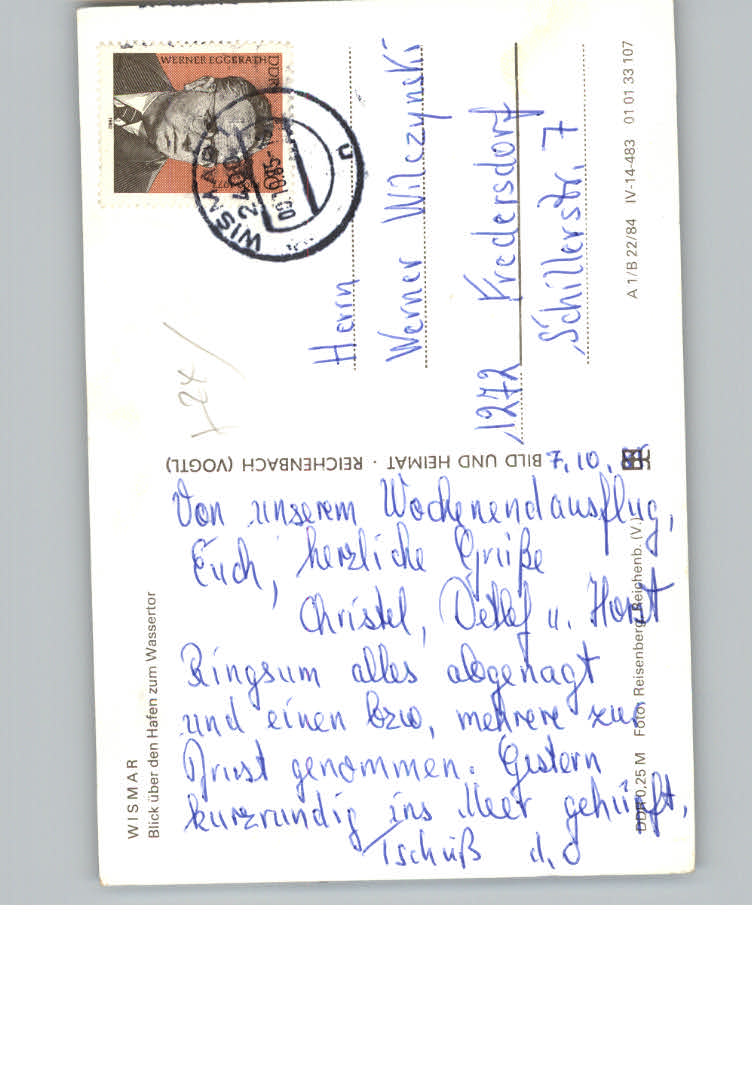 WERNER EGGERATH
DDR
WISMAR
2400
09.10.85
u
Herrn
Werner Wilczynski
1272 Fredersdorf
Schillerstr. 7
A 1/B 22/84 IV-14-483 01 01 33 107
BILD UND HEIMAT · REICHENBACH (VOGTL)
7.10.
Von unserem Wochenendausflug,
Euch, herzliche Grüße
Christel, Detlef u. Horst
Ringsum alles abgenagt
und einen bzw, mehrere zur
Brust genommen. Gestern
kurzrandig ins Meer gehüpft,
Tschüß d. O
WISMAR
Blick über den Hafen zum Wassertor
DDR 0,25 M Foto: Reisenberg, Reichenb. (V.)